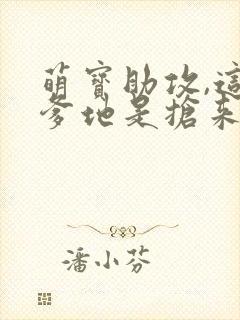 萌寶助攻,這
爹地是搶來
潘小芬